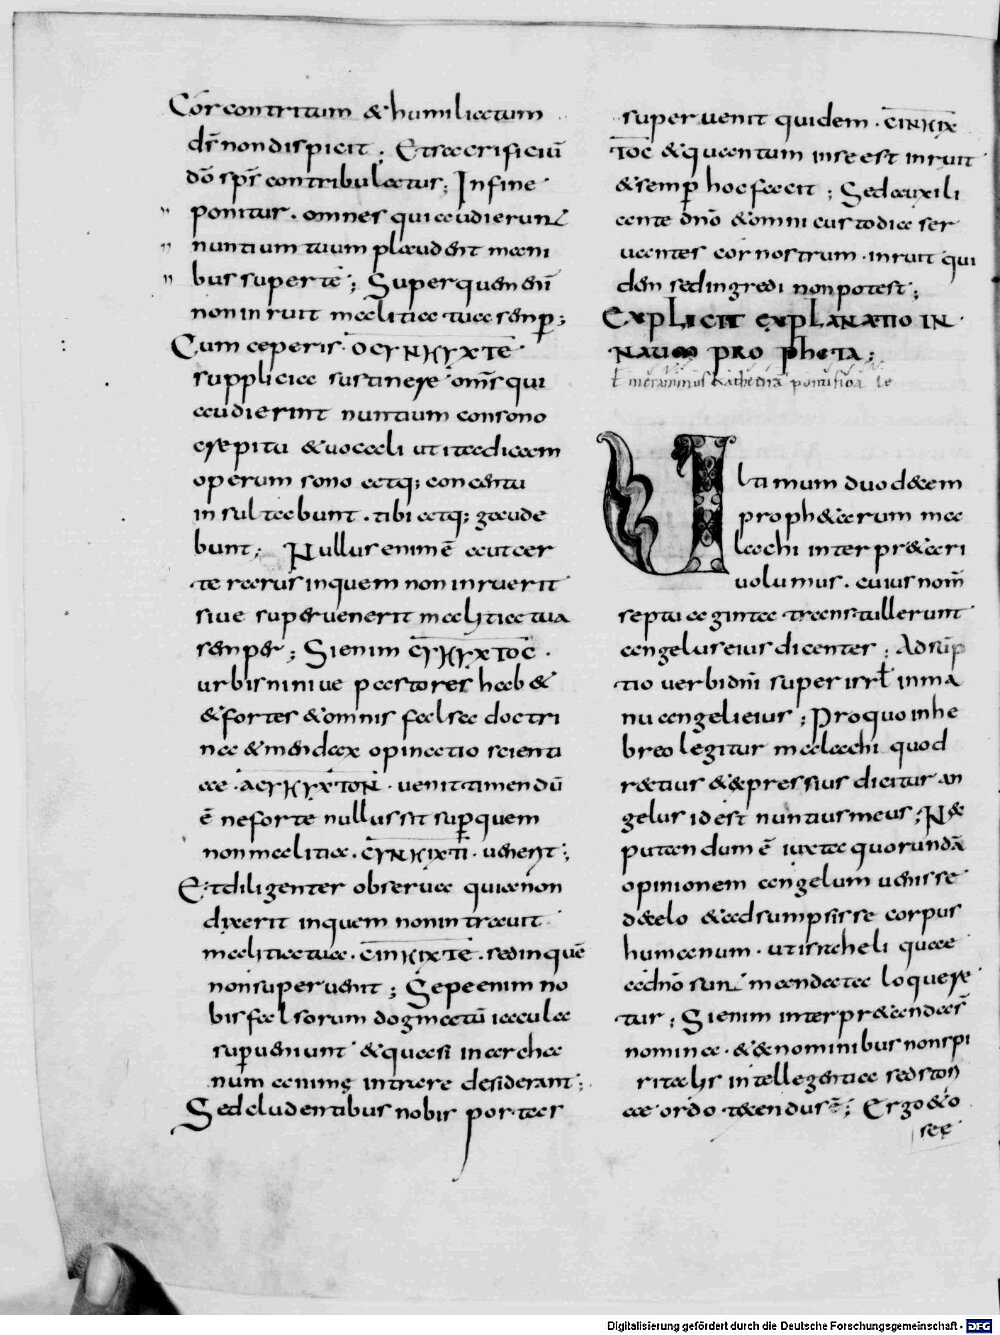 Cor contritum & humiliatum
ds̄ non dispicit ; Et sacrificiū
dō sps̄ contribulatus ; In fine
ponitur . omnes qui audierunt
nuntium tuum plaudent mani
bus super te ; Super quem enī
non inruit malitia tua semp̄ ;
Cum ceperis
supplicia sustinere oms̄ qui
audierint nuntium consono
crepitu & vocali ut ita dicam
operum sono atq; concentu
insultabunt . tibi atq; gaude
bunt ; Nullus enim ē aut cer
te rarus in quem non inruerit
sive supervenerit malitia tua
semper ; Si enim
urbis ninive pastores hab&
& fortes & omnis falsa doctri
na & mendax opinatio scienti
ae . venit timendū
ē ne forte nullus sit sup̄ quem
non malitia . venerit ;
Et diligenter observa quia non
dixerit in quem non intravit
malitia tua . sed in quē
non supervenit ; Sepe enim no
bis falsorum dogmatū iacula
sup̄veniunt & quasi in archa
num animę intrare desiderant ;
Sed cludentibus nobis portas
supervenit quidem .
& quantum in se est inruit
& semp̄ hoc facit ; Sed auxili
ante dn̄o & omni custodia ser
vantes cor nostrum . inruit qui
dem sed ingredi non potest ;
EXPLICIT EXPLANATIO IN
NAUM PROPHETA ;
Ultimum duodecem
proph&arum ma
lachi interpr&ari
volumus . cuius nom̄
septuaginta . transtullerunt
angelus eius dicentes ; Adsūp
tio verbi dn̄i super isrl̄ in ma
nu angeli eius ; Pro quo in he
breo legitur malachi quod
r&tius & &pressius dicitur an
gelus id est nuntius meus ; N&
putandum ē iuxta quorundā
opinionem angelum venisse
d&elo & adsumpsisse corpus
humanum . ut israheli quae
a dn̄o sunt mandata loquere
tur ; Si enim interpr&andas
nomina . & & nominibus non spi
ritalis intellegentia sed stori
ae ordo t&endus ē ; Ergo & o
see